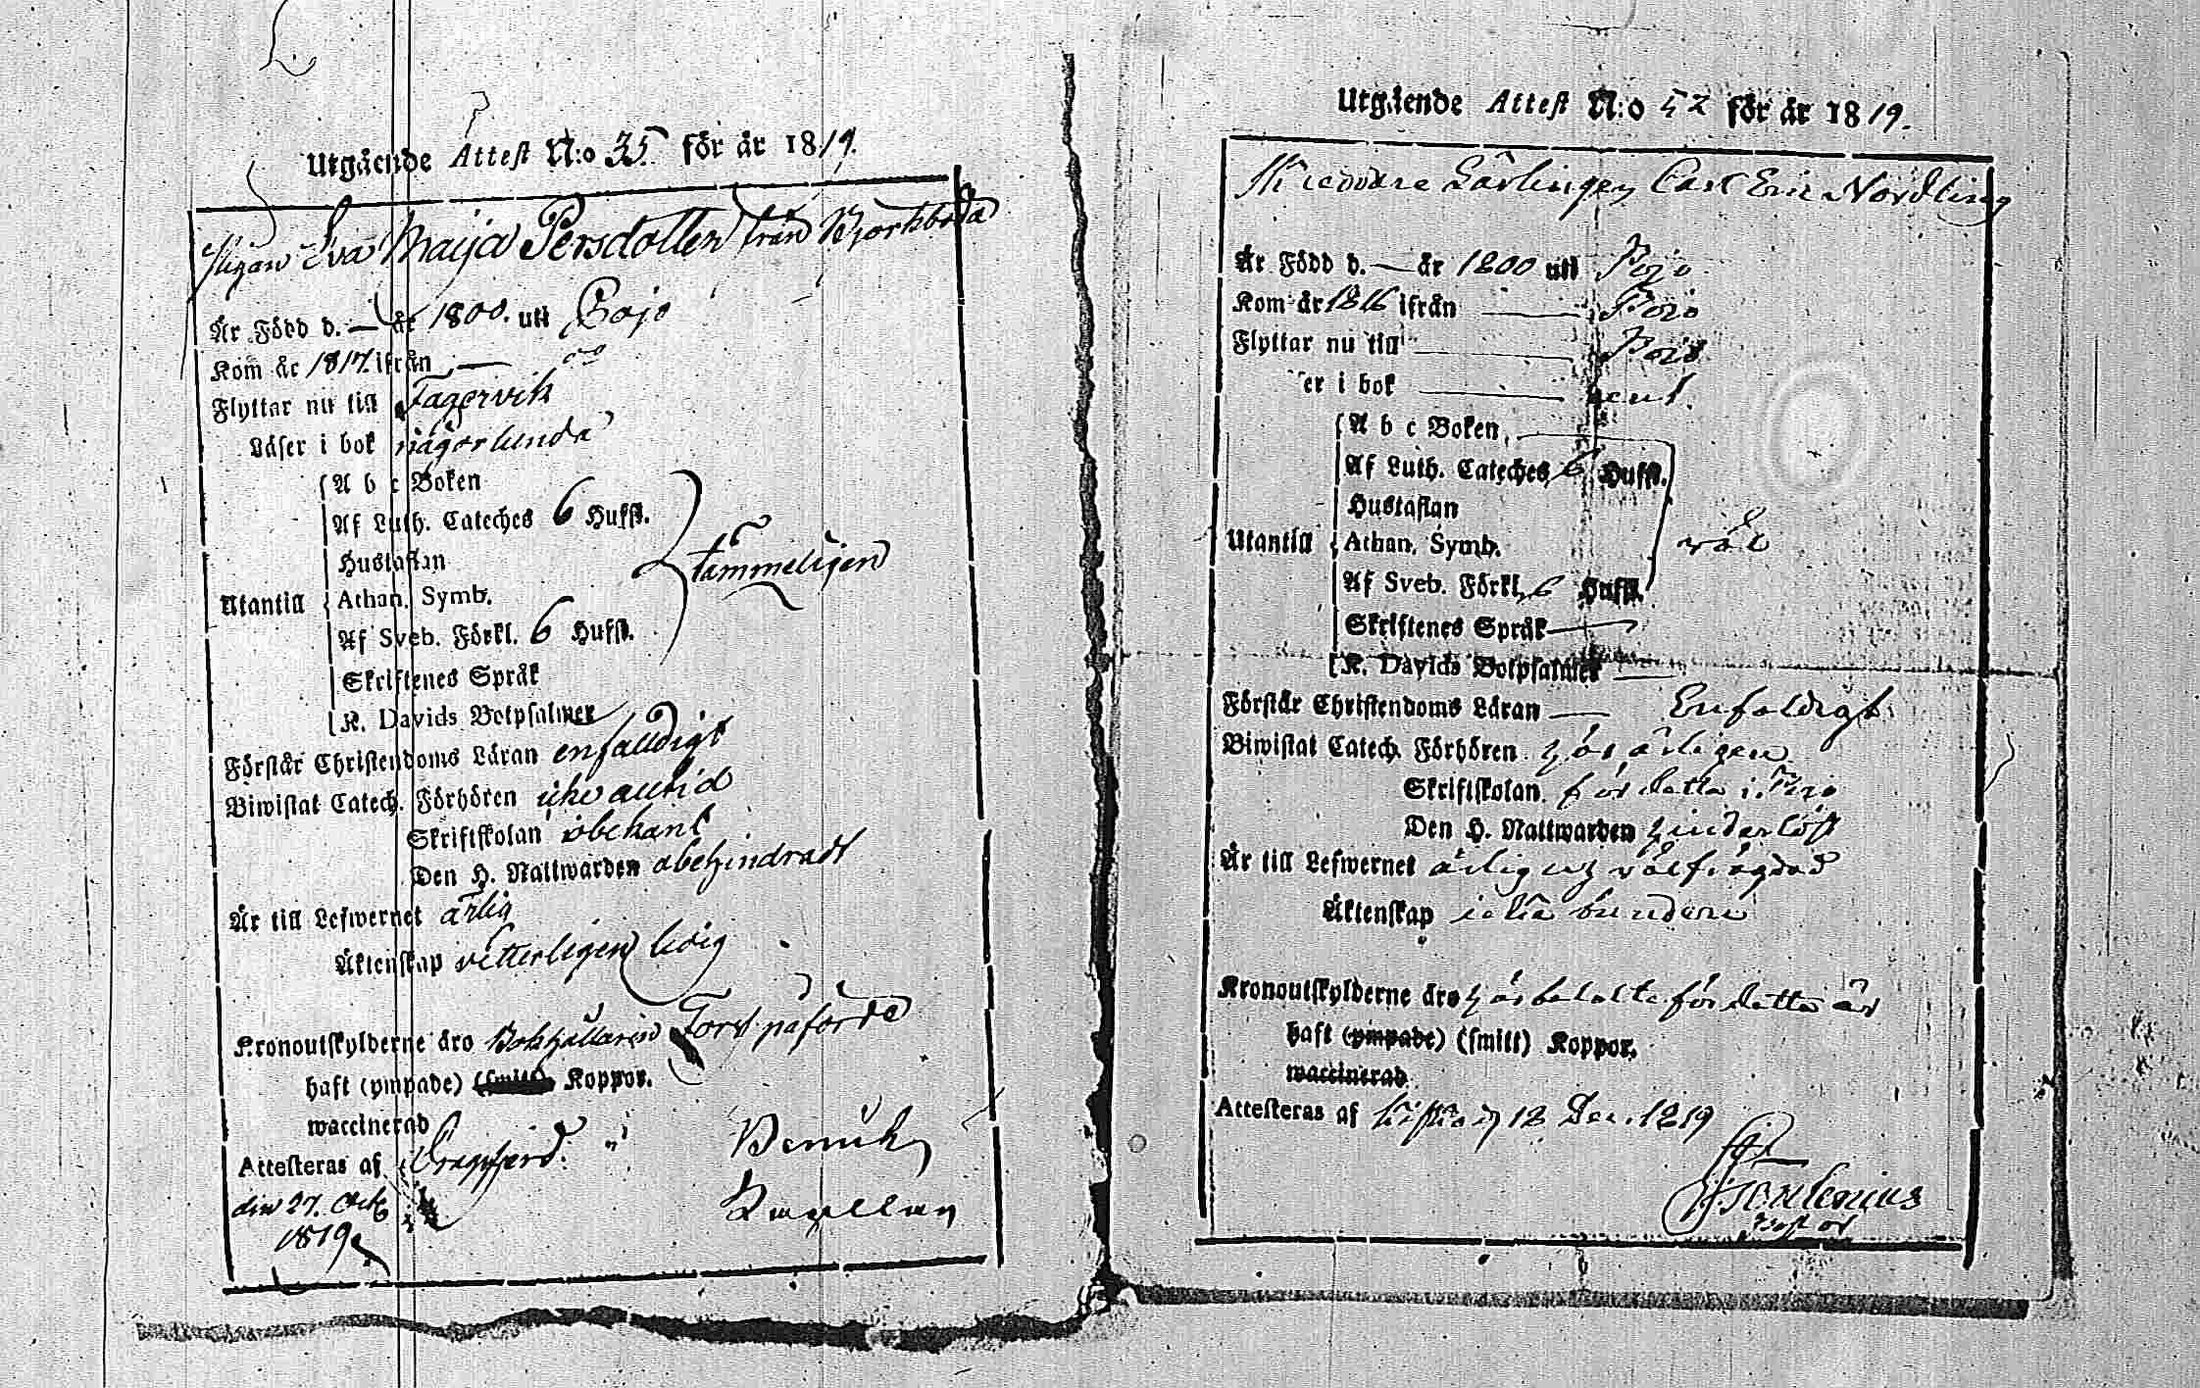 Utgående Attest N:o 35. för år 1819.
Pigan Eva Maija Persdotter från Björkboda
Är Född d. — år 1800. uti Pojo
Kom år 1817. ifrån — do
Flyttar nu till Fagervik
Läser i bok någorlunda
Utantill
A b c Boken
Af Luth. Cateches 6 Hufst.
Hustaflan
Athan. Symb.
Af Sveb. Förkl. 6 Hufst.
Skriftenes Språk
K. Davids Botpsalmer
tämmeligen
Förstår Christendoms Läran enfalldigt
Biwistat Catech. Förhören icke alltid
Skriftskolan obekant
Den H. Nattwarden obehindradt
Är till Lefwernet ärlig
Äktenskap vetterligen ledig
Kronoutskylderne äro Bokhållaren påförde
haft (ympade) (smitt) Koppor.
waccinerad
Attesteras af
den 27. Octb
1819
Utgående Attest N:o 52 för år 1819.
Lärlingen Carl Eric Nordling
Är Född d. — år 1800 uti Pojo
Kom år 1816 ifrån — Pojo
Flyttar nu till — Pojo
er i bok — rent
Utantill
A b c Boken, —
Af Luth. Cateches 6 Hufst.
Hustaflan
Athan. Symb.
Af Sveb. Förkl. 6 Hufst.
Skriftenes Språk —
K. Davids Botpsalmer —
väl
Förstår Christendoms Läran — Enfaldigt
Biwistat Catech. Förhören här årligen
Skriftskolan för detta i Pojo
Den H. Nattwarden hinderlöst
Är till Lefwernet ärlig och välfrägdad
Äktenskap icke bunden
Kronoutskylderne äro här betalte för detta år
haft (ympade) (smitt) Koppor.
waccinerad
Attesteras af 18 Dec. 1819
Pastor